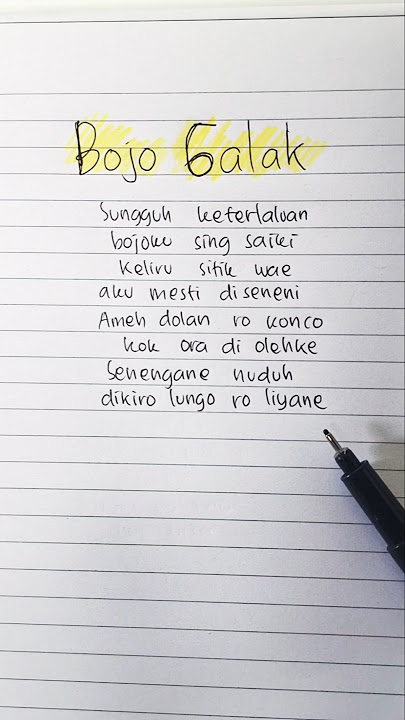 Bojo Galak
Sungguh keterlaluan
bojoku sing saiki
Keliru sitik wae
aku mesti diseneni
Ameh dolan ro konco
kok ora di olehke
Senengane nuduh
dikiro lungo ro liyane